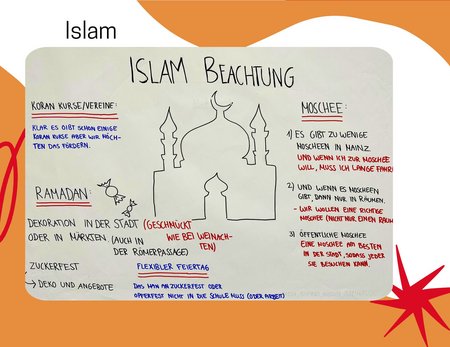 Islam
ISLAM BEACHTUNG
KORAN KURSE/VEREINE:
KLAR ES GIBT SCHON EINIGE
KORAN KURSE ABER WIR MÖCH-
TEN DAS FÖRDERN.
RAMADAN:
DEKORATION IN DER STADT (GESCHMÜCKT
ODER IN MÄRKTEN (AUCH IN WIE BEI WEINACH-
DER RÖMERPASSAGE) TEN)
ZUCKERFEST
→ DEKO UND ANGEBOTE
FLEXIBLER FEIERTAG
DAS MAN AN ZUCKERFEST ODER
OPFERFEST NICHT IN DIE SCHULE MUSS (ODER ARBEIT)
MOSCHEE:
1) ES GIBT ZU WENIGE
MOSCHEEN IN MAINZ
UND WENN ICH ZUR MOSCHEE
WILL, MUSS ICH LANGE
2) UND WENN ES MOSCHEEN
GIBT, DANN NUR IN RÄUMEN.
- WIR WOLLEN EINE RICHTIGE
MOSCHEE (NICHT NUR EINEN
3) ÖFFENTLICHE MOSCHEE
EINE MOSCHEE AM BESTEN
IN DER STADT, SODASS JEDER
SIE BESUCHEN KANN.